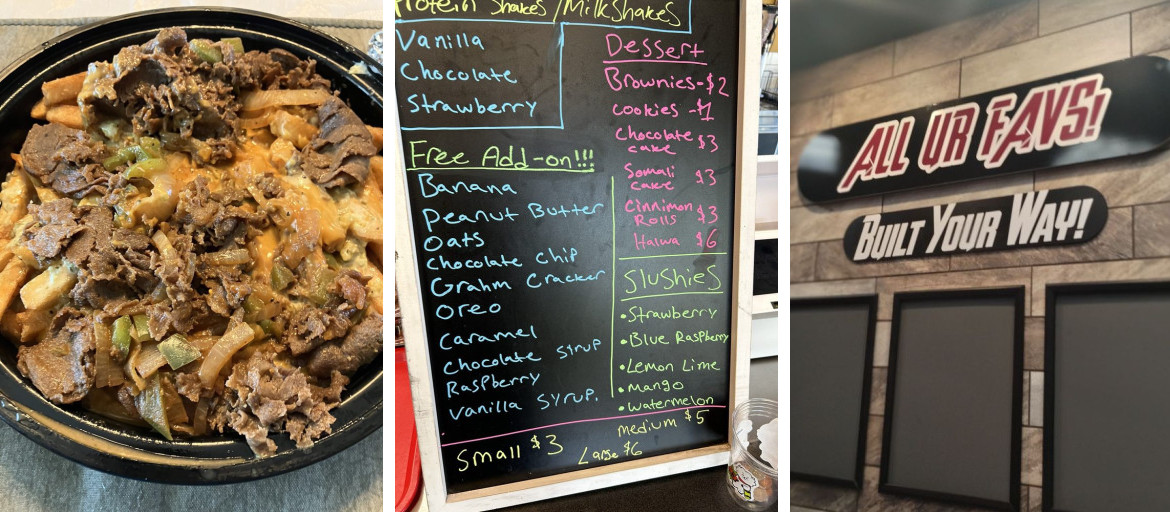 Protein Shakes / Milkshakes
Vanilla
Chocolate
Strawberry
Free Add-on!!!
Banana
Peanut Butter
Oats
Chocolate Chip
Grahm Cracker
Oreo
Caramel
Chocolate Sirup
Raspberry
Vanilla Syrup.
Dessert
Brownies - $2
Cookies - $1
Chocolate
cake $3
Somali
cake $3
Cinnimon
Rolls $3
Halwa $6
Slushies
• Strawberry
• Blue Raspberry
• Lemon Lime
• Mango
• Watermelon
Small $3
medium $5
Large $6
ALL UR FAVS!
BUILT YOUR WAY!